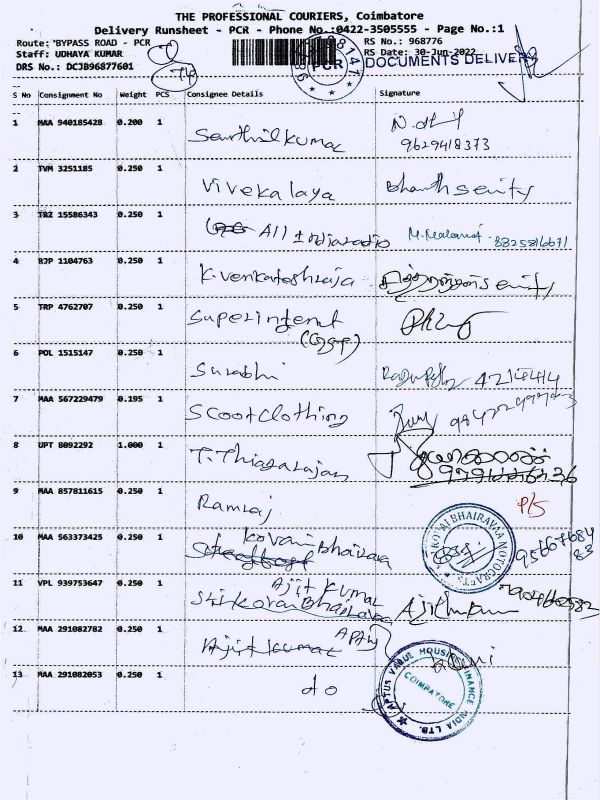 THE PROFESSIONAL COURIERS, Coimbatore
Delivery Runsheet - PCR - Phone No.:0422-3505555 - Page No.:1
Route: BYPASS ROAD - PCR
RS No.: 968776
Staff: UDHAYA KUMAR
RS Date: 30-Jun-2022
DRS No.: DCJB96877601
PCR
DOCUMENTS DELIVERY
S No Consignment No Weight PCS Consignee Details Signature
1 MAA 940185428 0.200 1 Senthilkumar
9629418373
2 TVM 3251185 0.250 1 Vivekalaya
3 TRZ 15586343 0.250 1 All Indiaradio
4 RJP 1104763 0.250 1 K.venkateshraja
5 TRP 4762707 0.250 1 Superintent
6 POL 1515147 0.250 1 Surabhi
7 MAA 567229479 0.195 1 Scootclothing
8 UPT 8092292 1.000 1 T.Thiagarajan
9 MAA 857811615 0.250 1 Ramraj P/S
10 MAA 563373425 0.250 1 kovai Bhairava
KOVAI BHAIRAVAA MOTOCRAFTS
11 VPL 939753647 0.250 1 Ajit kumar
Sri kovai Bhairava
12 MAA 291082782 0.250 1 Ajit kumar
13 MAA 291082053 0.250 1 do
APTUS VALUE HOUSING FINANCE INDIA LTD.
COIMBATORE